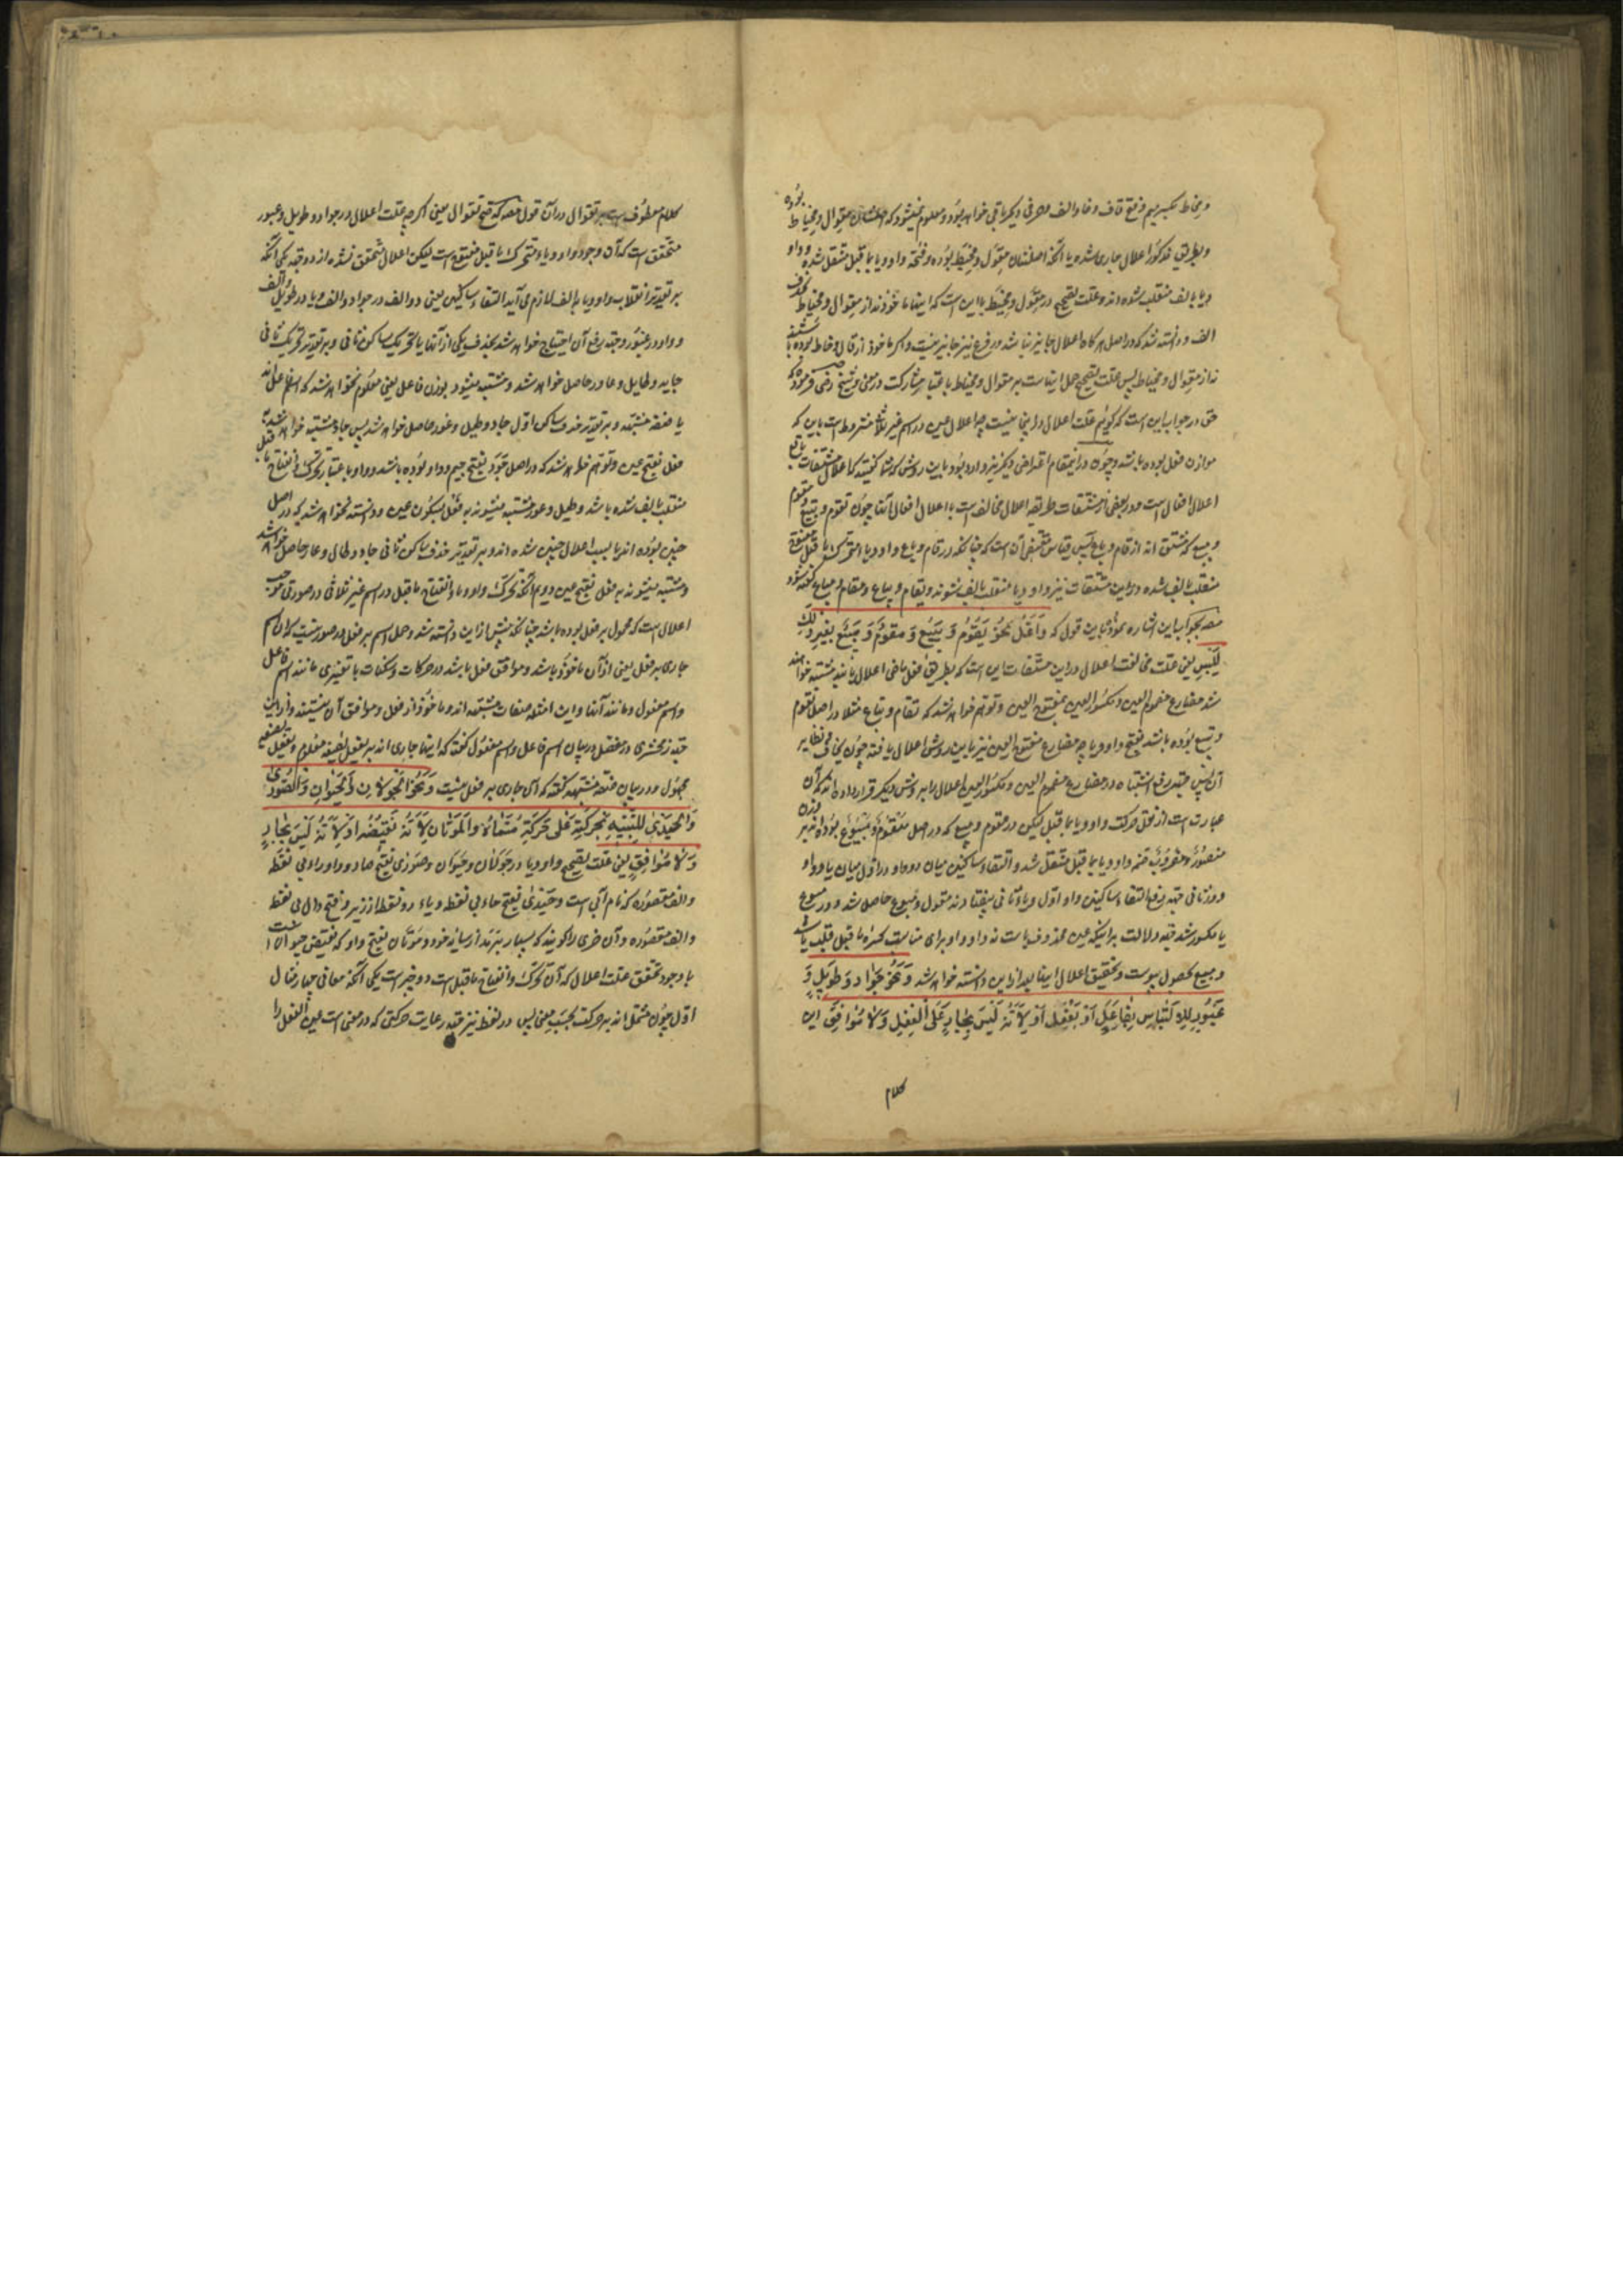 و مخیاط بکسر میم و فتح قاف و خا و الف و حرفی دیگر باقی خواهد بود و معلوم نمیشود که اصلشان مقوال و مخیاط بوده
و بطریق مذکور اعلال جاری شده یا آنکه اصلشان مقول و مخیط بوده و فتحه واو و یا بما قبل منتقل شده و واو
و یا بالف منقلب شده اند و علت تصحیح در مقول و مخیط با این است که اینها ماخوذند از مقوال و مخیاط بحذف
الف و دانسته شد که در اصل هرگاه اعلال جایز نباشد در فرع نیز جایز نیست و اگر ماخوذ از قال و خاط بوده باشند
نه از مقوال و مخیاط پس علت تصحیح حمل اینهاست بر مقوال و مخیاط باعتبار مشارکت در معنی و شیخ رضی فرموده که
حق در جواب این است که گوئیم علت اعلال در اینجا نیست چه اعلال عین در اسم غیر ثلاثی مشروط است باین که
موازن فعل بوده باشد و چون در اینمقام اعتراضی دیگر نیز وارد بود باین روش که شما گفتید که اعلال مشتقات تابع
اعلال افعال است و در بعضی از مشتقات طریقه اعلال مخالف است با اعلال افعال آنها چون تقوم و یبیع و مقوم
و مبیع که مشتق اند از قام و باع پس قیاس مقتضی آن است که چنانکه در قام و باع واو و یا متحرک ما قبل مفتوح
منقلب بالف شده در این مشتقات نیز واو و یا منقلب بالف شوند و یقام و یباع و مقام و مباع گفته شود
مصه بجواب این اشاره نمود باین قول که وَاُعِلَّ نَحْوُ یَقُوْمُ وَ یَبِیْعُ وَ مَقُوْمٌ وَ مَبِیْعٌ بِغَیْرِ ذٰلِکَ
لِلَّبْسِ یعنی علت مخالفت اعلال در این مشتقات این است که بطریق فعل ماضی اعلال یابند مشتبه خواهند
شد مضارع مضموم العین و مکسور العین بمفتوح العین و توهم خواهد شد که تقام و تباع مثلا در اصل تقوم
و تبیع بوده باشد بفتح واو و یا چه مضارع مفتوح العین نیز باین روش اعلال یافته چون یخاف و نظایر
آن پس جهت رفع اشتباه در مضارع مضموم العین و مکسور العین اعلال را بر روش دیگر قرار داده اند که آن
عبارت است از نقل حرکت واو و یا بما قبل لیکن در مقوم و مبیع که در اصل مقووم و مبیوع بوده اند بر وزن
منصور و مضروب ضمه واو و یا بما قبل منتقل شد و التقاء ساکنین میان دو واو در اول میان یا و واو
در ثانی جهت رفع التقاء ساکنین واو اول و یاء ثانی بیفتاد نه مقول و مبوع حاصل شد و در مبوع
با مکسور شد جهت دلالت بر اینکه عین محذوف یا است نه واو و واو برای مناسبت کسره ما قبل قلب بیا شد
و مبیع بحصول پیوست و تحقیق اعلال اینها بعد از این دانسته خواهد شد وَ نَحْوُ جَوَادٍ وَ طَوِیْلٍ وَ
غَیُوْرٍ لِلْاِلْتِبَاسِ بِفَاعِلٍ اَوْ بِفَعَلَ اَوْ لِاَنَّهُ لَیْسَ بِجَارٍ عَلَی الْفِعْلِ وَلَا مُوَافِقٍ این
کلام
کلام معطوف است بر تقوال در آن قول مصه که صح تقوال یعنی اگر چه علت اعلال در جواد و طویل و غیور
متحقق است که آن وجود واو و یاء متحرک ما قبل مفتوح است لیکن اعلال متحقق نشده از دو وجه یکی آنکه
بر تقدیر انقلاب واو و یا بالف لازم می آید التقاء ساکنین یعنی دو الف در جواد و الف و یا در طویل و الف
و واو در غیور و جهت رفع آن احتیاج خواهد شد بحذف یکی از آنها یا تحریک ساکن ثانی و بر تقدیر تحریک ثانی
جاید و طایل و غاور حاصل خواهد شد و مشتبه میشود بوزن فاعل یعنی معلوم نخواهد شد که اسم فاعل اند
یا صفه مشبهه و بر تقدیر حذف ساکن اول جاد و طیل و غور حاصل خواهد شد پس جاد مشتبه خواهد شد به
فعل بفتح عین و توهم خواهد شد که در اصل جود بفتح جیم و واو بوده باشد و واو باعتبار تحرک و انفتاح ما قبل
منقلب بالف شده باشد و طیل و غور مشتبه میشوند به فعل بسکون عین و دانسته نخواهد شد که در اصل
چنین بوده اند یا بسبب اعلال چنین شده اند و بر تقدیر حذف ساکن ثانی جاد و طال و غار حاصل خواهد شد
و مشتبه میشوند به فعل بفتح عین دویم آنکه تحرک واو و یاء و انفتاح ما قبل در اسم غیر ثلاثی در صورتی موجب
اعلال است که محمول بر فعل بوده باشد چنانکه پیش از این دانسته شد و حمل اسم بر فعل در صورتیست که آن اسم
جاری بر فعل یعنی از آن ماخوذ باشد و موافق فعل باشد در حرکات و سکنات با تغییری مانند اسم فاعل
و اسم مفعول و مانند آنها و این امثله صفات مشبهه اند و ماخوذ از فعل و موافق آن نیستند و از این
جهت زمخشری در مفصل در بیان اسم فاعل و اسم مفعول گفته که اینها جاری اند بر یفعل بصیغه معلوم و یفعل بصیغه
مجهول و در بیان صفه مشبهه گفته که آن جاری بر فعل نیست وَ نَحْوُ الْجَوَلَانِ وَ الْحَیَوَانِ وَ الصَّوَرٰی
وَ الْحَیَدٰی لِلتَّنْبِیْهِ بِحَرَکَتِهِ عَلٰی حَرَکَةِ مُسَمَّاهُ وَ الْمَوَتَانِ لِاَنَّهُ نَقِیْضُهُ اَوْ لِاَنَّهُ لَیْسَ بِجَارٍ
وَ لَا مُوَافِقٍ یعنی علت تصحیح واو و یا در جولان و حیوان و صوری بفتح صاد و واو و راء بی نقطه
و الف مقصوره که نام آبی است و حیدی بفتح حاء بی نقطه و یاء دو نقطه از زیر و فتح دال بی نقطه
و الف مقصوره و آن خری را گویند که بسیار برمد از سایه خود و موتان بفتح واو که نقیض حیوان است
با وجود تحقق علت اعلال که آن تحرک و انفتاح ما قبل است دو چیز است یکی آنکه معانی چهار مثال
اول چون مشتمل اند بر حرکت بحسب معنی پس در لفظ نیز جهت رعایت حرکتی که در معنی است عین الفعل را